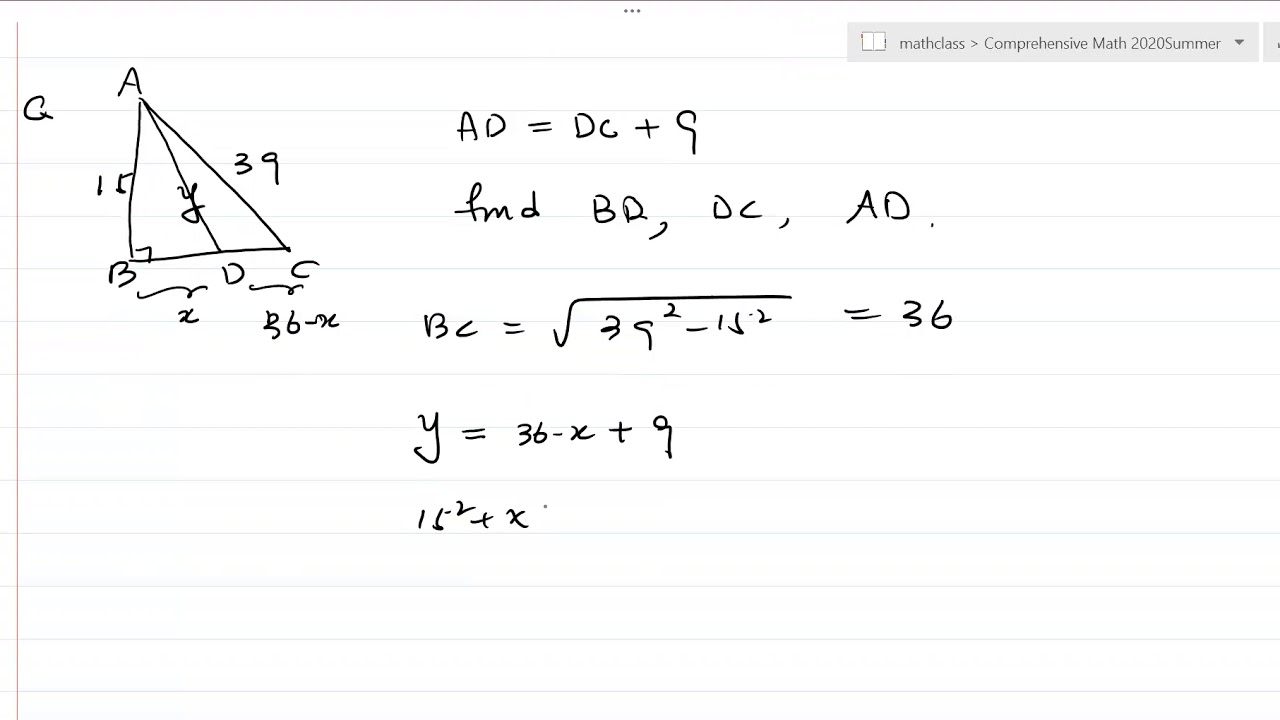 ...
mathclass > Comprehensive Math 2020Summer
Q
A
15
39
y
B
D
C
x
36-x
AD = DC + 9
find BD, DC, AD.
BC = √39²-15² = 36
y = 36-x + 9
15²+ x